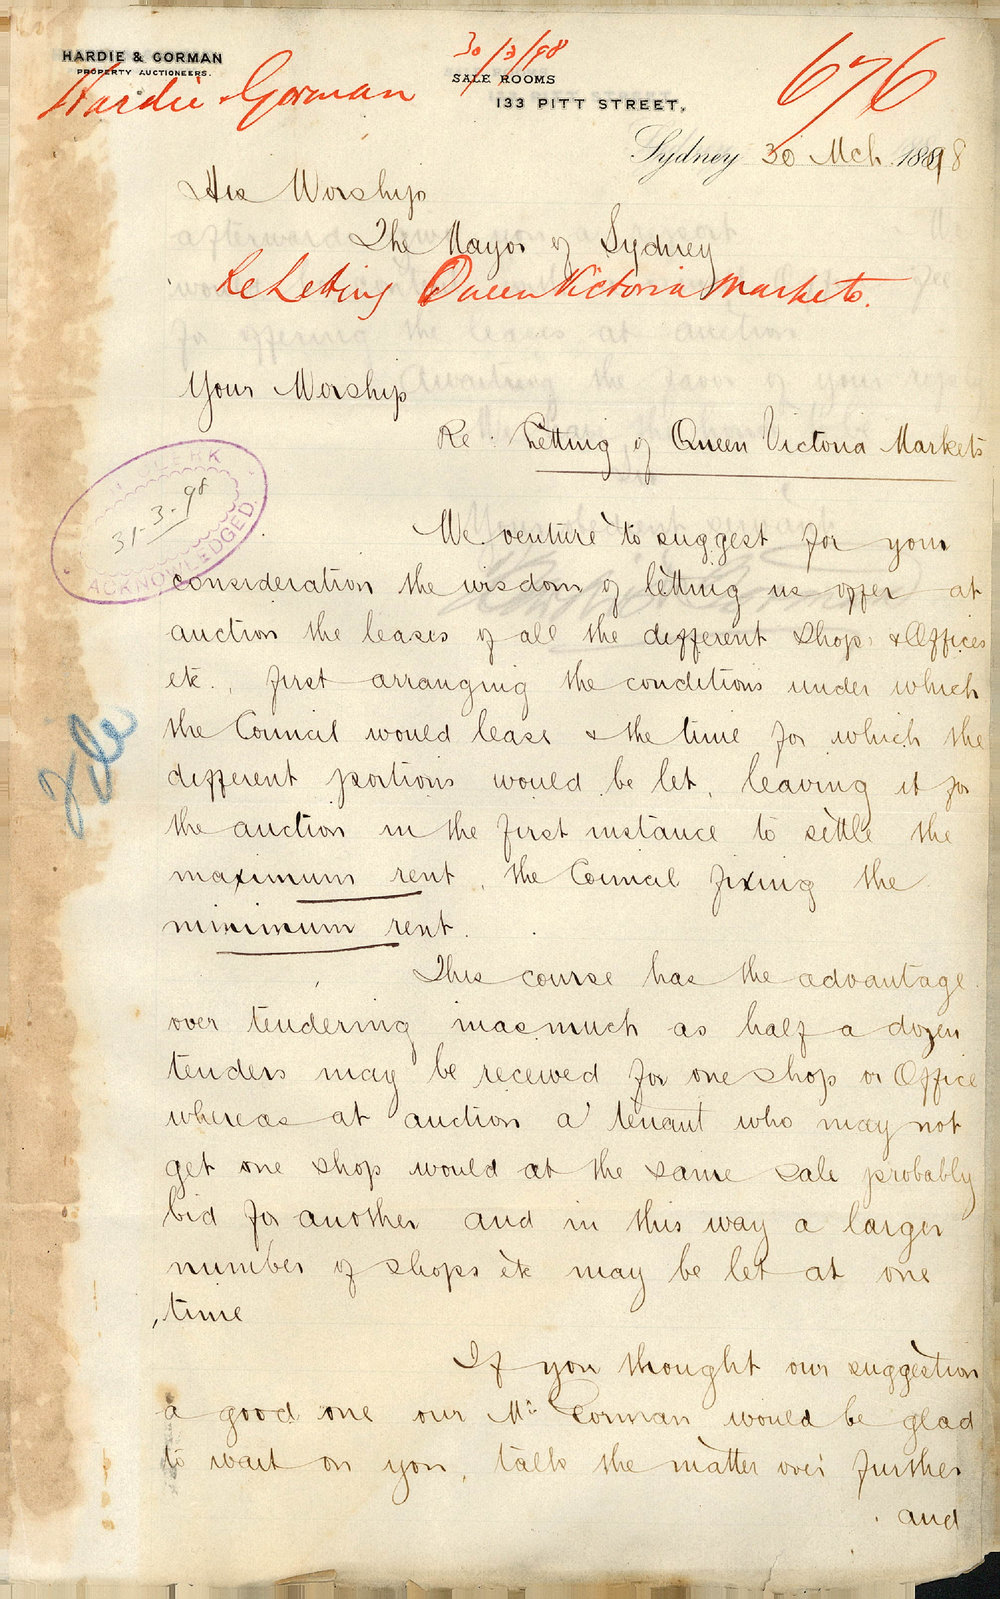 HARDIE & GORMAN
PROPERTY AUCTIONEERS.
30/3/98
SALE ROOMS
133 PITT STREET.
676
Hardie & Gorman
Sydney 30 Mch 1898
His Worship
The Mayor of Sydney
Re Letting Queen Victoria Markets.
Your Worship
Re. Letting of Queen Victoria Markets
CLERK
31-3-98
ACKNOWLEDGED.
We venture to suggest for your
consideration the wisdom of letting us offer at
auction the leases of all the different Shops & Offices
etc., first arranging the conditions under which
the Council would lease & the time for which the
different portions would be let, leaving it for
the auction in the first instance to settle the
maximum rent, the Council fixing the
minimum rent.
File
This course has the advantage
over tendering inasmuch as half a dozen
tenders may be received for one shop or Office
whereas at auction a tenant who may not
get one shop would at the same sale probably
bid for another and in this way a larger
number of shops etc may be let at one
time
If you thought our suggestion
a good one our Mr Gorman would be glad
to wait on you, talk the matter over further
and